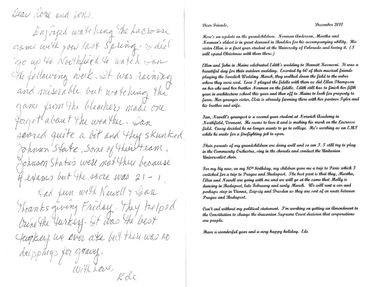 Dear Gene and son,
Enjoyed watching the Lacrosse
game with you last Spring. I did
go up to Northfield to watch Ian
the following week. It was raining
and miserable but watching the
game from the bleachers made one
forget about the weather. Ian
scored quite a bit and they skunked
Johnson State. Some of their team,
Johnson State's were not there because
of exams but the score was 21-1.
Had fun with Newell + Ian
Thanksgiving Friday. They helped
brine the turkey. It was the best
turkey we ever ate but there was no
drippings for gravy.
With Love,
Ede
Dear Friends, December 2011
Here's an update on the grandchildren. Norman Anderson, Martha and
Norman's oldest is in great demand in Boulder for his accompanying ability. His
sister Ellen is a first year student at the University of Colorado and loving it. (I
will spend Christmas with them there.)
Ellen and John in Maine celebrated Edith's wedding to Hannah. It was a
beautiful day for their outdoor wedding. Escorted by 60 of their musical friends
playing the Swedish Wedding March, they walked down the field to the arbor
where they were wed.
year in architecture school this year and then off to Maine to look for property to
farm. Her younger sister, is already farming there with her partner Tyler and
his brother and wife.
Ian, Newell's youngest is a second year student at Norwich Academy in
Northfield, Vermont. He seems to love it and is making his mark on the Lacrosse
field. Casey decided he no longer wants to go to college. He's working as an EMT
while he waits for a firefighting job to open.
Their parents of my grandchildren are doing well and so am I. I still try to play
in the Community Orchestra, sing in the chorale and conduct the Unitarian
Universalist choir.
For my big one, an my 80th birthday, my children gave me a trip to Paris which I
switched for a trip to Prague and Budapest. The best part is that they, Martha,
Ellen and Newell are going with me and we will go at the same time Molly is
dancing in Budapest, late February and early March. We will rent a car and
perhaps stop in Vienna, Leipzig and Dresden as they are sort of en route between
Prague and Budapest.
Can't end without my political statement. I'm working on getting an Amendment to
the Constitution to change the Supreme Court decision that corporations
are people.
Have a wonderful year and a very happy holiday. Ede